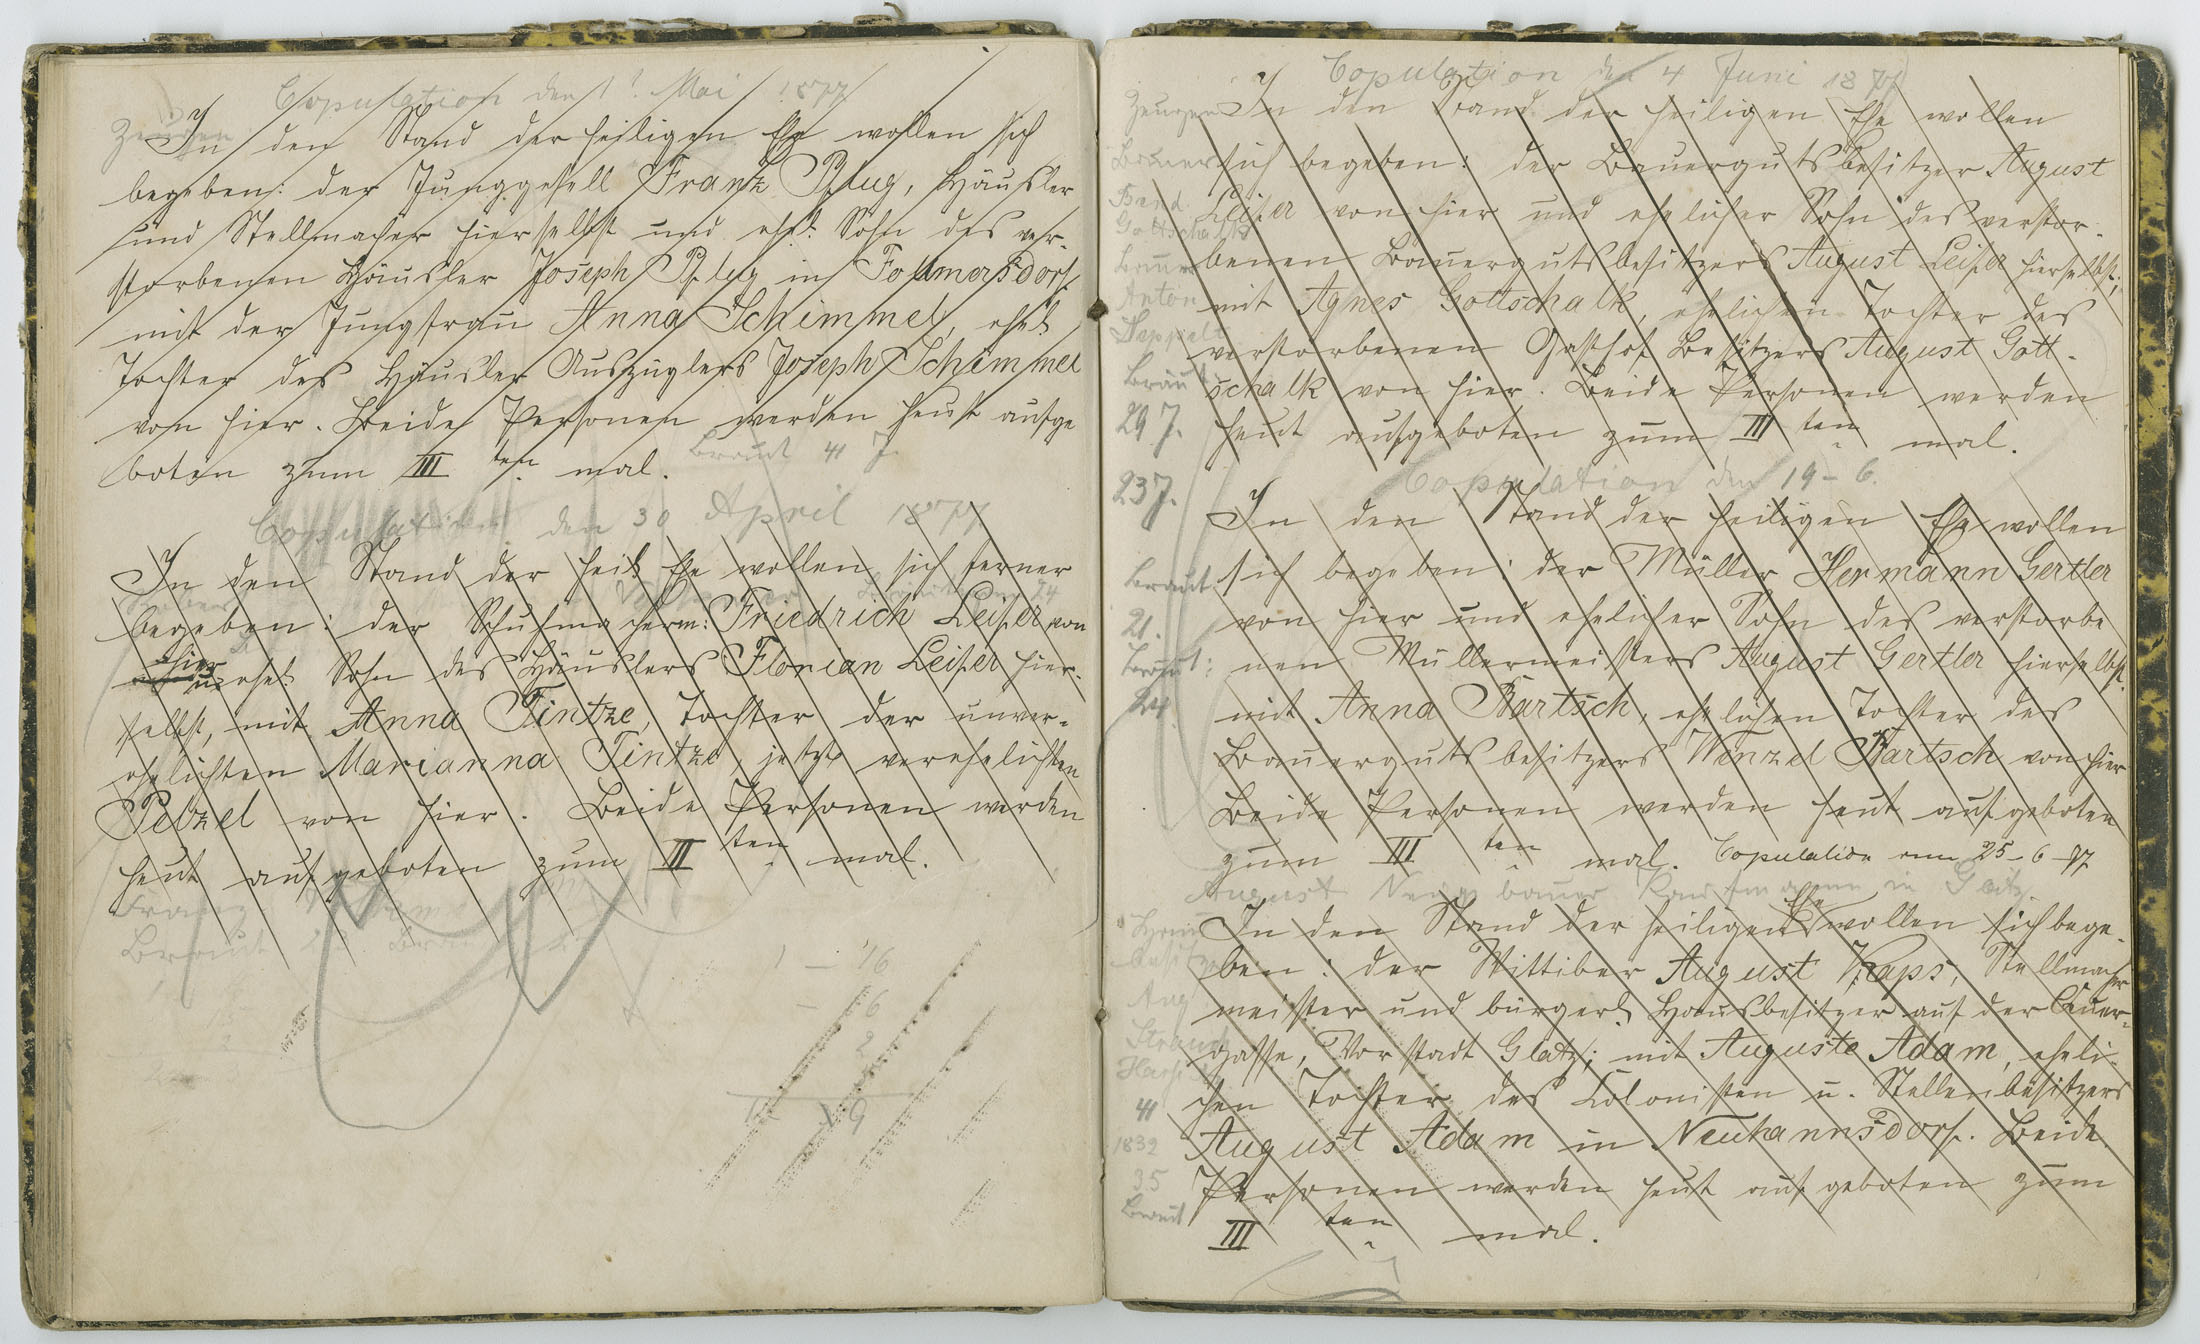 Copulation den 1? Mai 1877
Zeugen
In den Stand der heiligen Ehe wollen sich
begeben: der Junggesell Franz Pflug, Häusler
und Stellmacher hierselbst und ehel. Sohn des ver-
storbenen Häusler Joseph Pflug in Follmersdorf
mit der Jungfrau Anna Schimmel, ehel.
Tochter des Häusler Auszüglers Joseph Schimmel
von hier. Beide Personen werden heut aufge
boten zum III ten mal.
Braut 41 J.
Copulation den 30 April 1877
In den Stand der heil. Ehe wollen sich ferner
begeben: der Schuhmacherm: Friedrich Leißer von
hier u. ehel. Sohn des Häuslers Florian Leißer hier-
selbst, mit Anna Tintze, Tochter der unver-
ehelichten Marianna Tintze, jetzt verehelichten
Pelzel von hier. Beide Personen werden
heut aufgeboten zum III ten mal.
Franz
Braut
1 – 16
– 6
2
19
Copulation den 4 Juni 1877
Zeugen
In den Stand der heiligen Ehe wollen
sich begeben: der Bauergutsbesitzer August
Leißer von hier und ehelicher Sohn des verstor-
benen Bauergutsbesitzers August Leißer hierselbst;
mit Agnes Gottschalk, ehelichen Tochter des
verstorbenen Gasthof Besitzers August Gott-
schalk von hier. Beide Personen werden
heut aufgeboten zum III ten mal.
Bauer
Gottschalk
Bauer
Anton
29 J.
23 J.
Copulation den 19 – 6.
In den Stand der heiligen Ehe wollen
sich begeben: der Müller Hermann Gertler
von hier und ehelicher Sohn des verstorbe
nen Müllermeisters August Gertler hierselbst.
mit Anna Bartsch, ehelichen Tochter des
Bauergutsbesitzers Wenzel Bartsch von hier
Beide Personen werden heut aufgeboten
zum III ten mal. Copulation am 25 – 6 – 77
Braut
21.
24.
August Neugebauer Kaufmann in Glatz
In den Stand der heiligen Ehe wollen sich bege-
ben: der Wittiber August Kaps, Stellmacher
meister und bürgerl. Hausbesitzer auf der Quer-
gasse, Vorstadt Glatz; mit Auguste Adam, eheli-
chen Tochter des Colonisten u. Stellenbesitzers
August Adam in Neuhannsdorf. Beide
Personen werden heut aufgeboten zum
III ten mal.
Aug
41
1832
35
Braut